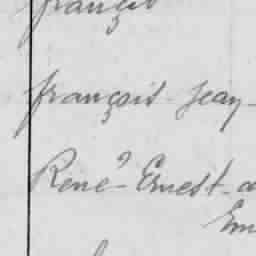 françois
françois Jean-
René-Ernest-
Em